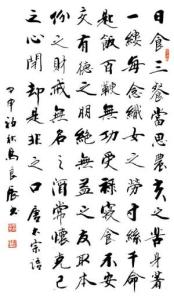 日食三餐當思農夫之苦身著
一縷每念織女之勞寸絲千命
匙飯百鞭無功受祿寢食不安
交有德之朋絕無益之友取本
份之財戒無名之酒常懷克己
之心閉却是非之口 唐太宗語
丙申初秋馬良書